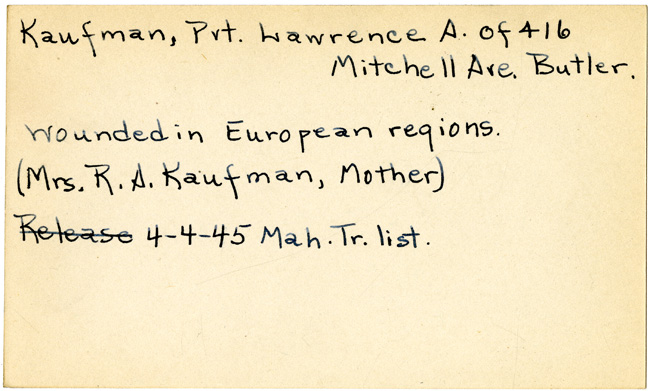 Kaufman, Pvt. Lawrence A. of 416
Mitchell Ave. Butler.
Wounded in European regions.
(Mrs. R. A. Kaufman, Mother)
Release 4-4-45 Mah. Tr. list.